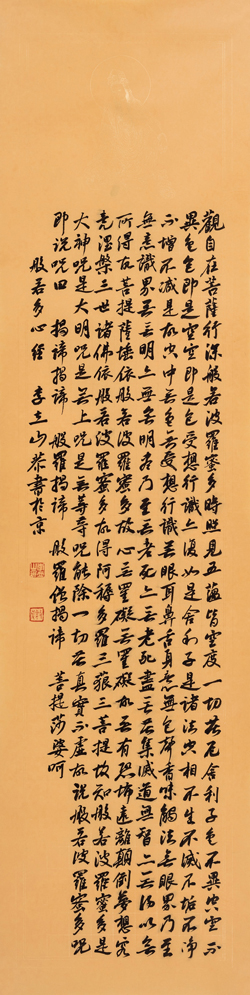 觀自在菩薩行深般若波羅蜜多時照見五蘊皆空度一切苦厄舍利子色不異空空不
異色色即是空空即是色受想行識亦復如是舍利子是諸法空相不生不滅不垢不淨
不增不減是故空中无色无受想行識无眼耳鼻舌身意無色聲香味觸法无眼界乃至
無意識界无无明亦無无明盡乃至无老死亦无老死盡无苦集滅道無智亦无得以無
所得故菩提薩埵依般若波羅蜜多故心无罣礙无罣礙故无有恐怖遠離顛倒夢想究
竟涅槃三世諸佛依般若波羅蜜多故得阿耨多羅三藐三菩提故知般若波羅蜜多是
大神呪是大明呪是无上呪是无等等呪能除一切苦真實不虛故說般若波羅蜜多呪
即說呪曰 揭諦揭諦 般羅揭諦 般羅僧揭諦 菩提莎婆呵
般若多心經 李立山恭書於京